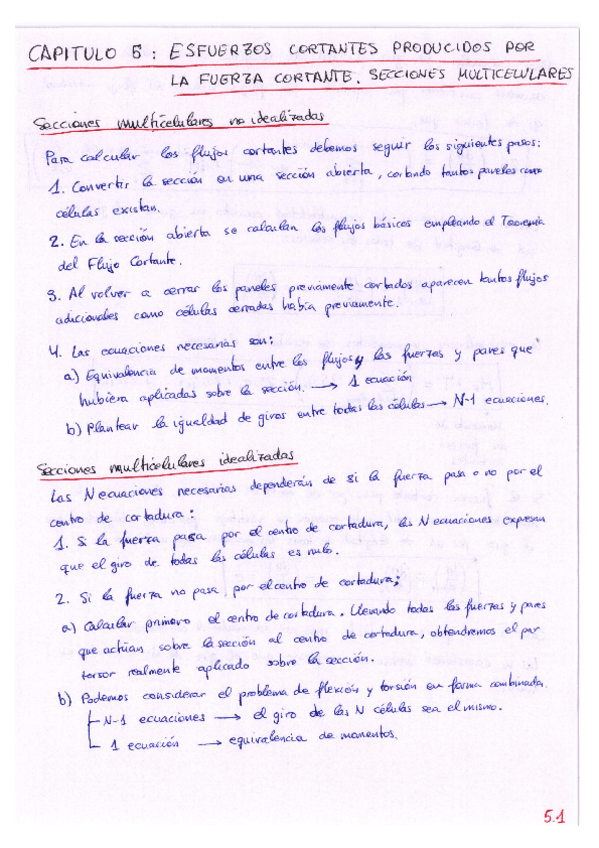 CAPITULO 5: ESFUERZOS CORTANTES PRODUCIDOS POR
LA FUERZA CORTANTE. SECCIONES MULTICELULARES
Secciones multicelulares no idealizadas
Para calcular los flujos cortantes debemos seguir los siguientes pasos:
1. Convertir la sección en una sección abierta, cortando tantos paneles como
células existan.
2. En la sección abierta se calculan los flujos básicos empleando el Teorema
del Flujo Cortante.
3. Al volver a cerrar los paneles previamente cortados aparecen tantos flujos
adicionales como células cerradas había previamente.
4. Las ecuaciones necesarias son:
a) Equivalencia de momentos entre los flujos y las fuerzas y pares que
hubiera aplicadas sobre la sección. → 1 ecuación
b) Plantear la igualdad de giros entre todas las células → N-1 ecuaciones.
Secciones multicelulares idealizadas
Las N ecuaciones necesarias dependerán de si la fuerza pasa o no por el
centro de cortadura:
1. Si la fuerza pasa por el centro de cortadura, las N ecuaciones expresan
que el giro de todas las células es nulo.
2. Si la fuerza no pasa por el centro de cortadura:
a) Calcular primero el centro de cortadura. Llevando todas las fuerzas y pares
que actúan sobre la sección al centro de cortadura, obtendremos el par
torsor realmente aplicado sobre la sección.
b) Podemos considerar el problema de flexión y torsión en forma combinada.
N-1 ecuaciones → el giro de las N células sea el mismo.
1 ecuación → equivalencia de momentos.
5.1